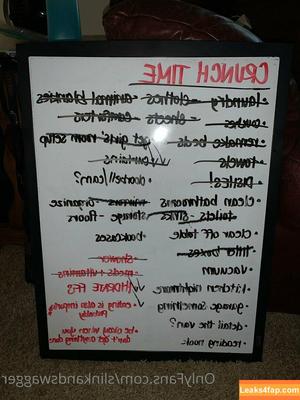 CRUNCH TIME
• laundry - clothes - animal blankies
• couches - sheets - comforters
• remake beds • get girls' room setup
• towels - curtains
• DISHES! • doorbell/cam?
• clean bathrooms • organize
• toilets - sinks - storage - floors
• clear off table • bookcases
• litter boxes • shower
• vacuum • meds + vitamins
• kitchen nightmare HYDRATE FFS
• garage something eating is also important probably
• detail the van?
• reading nook • be clean when you don't get anything done
OnlyFans.com/slinkandswagger
Leaks4fap.com